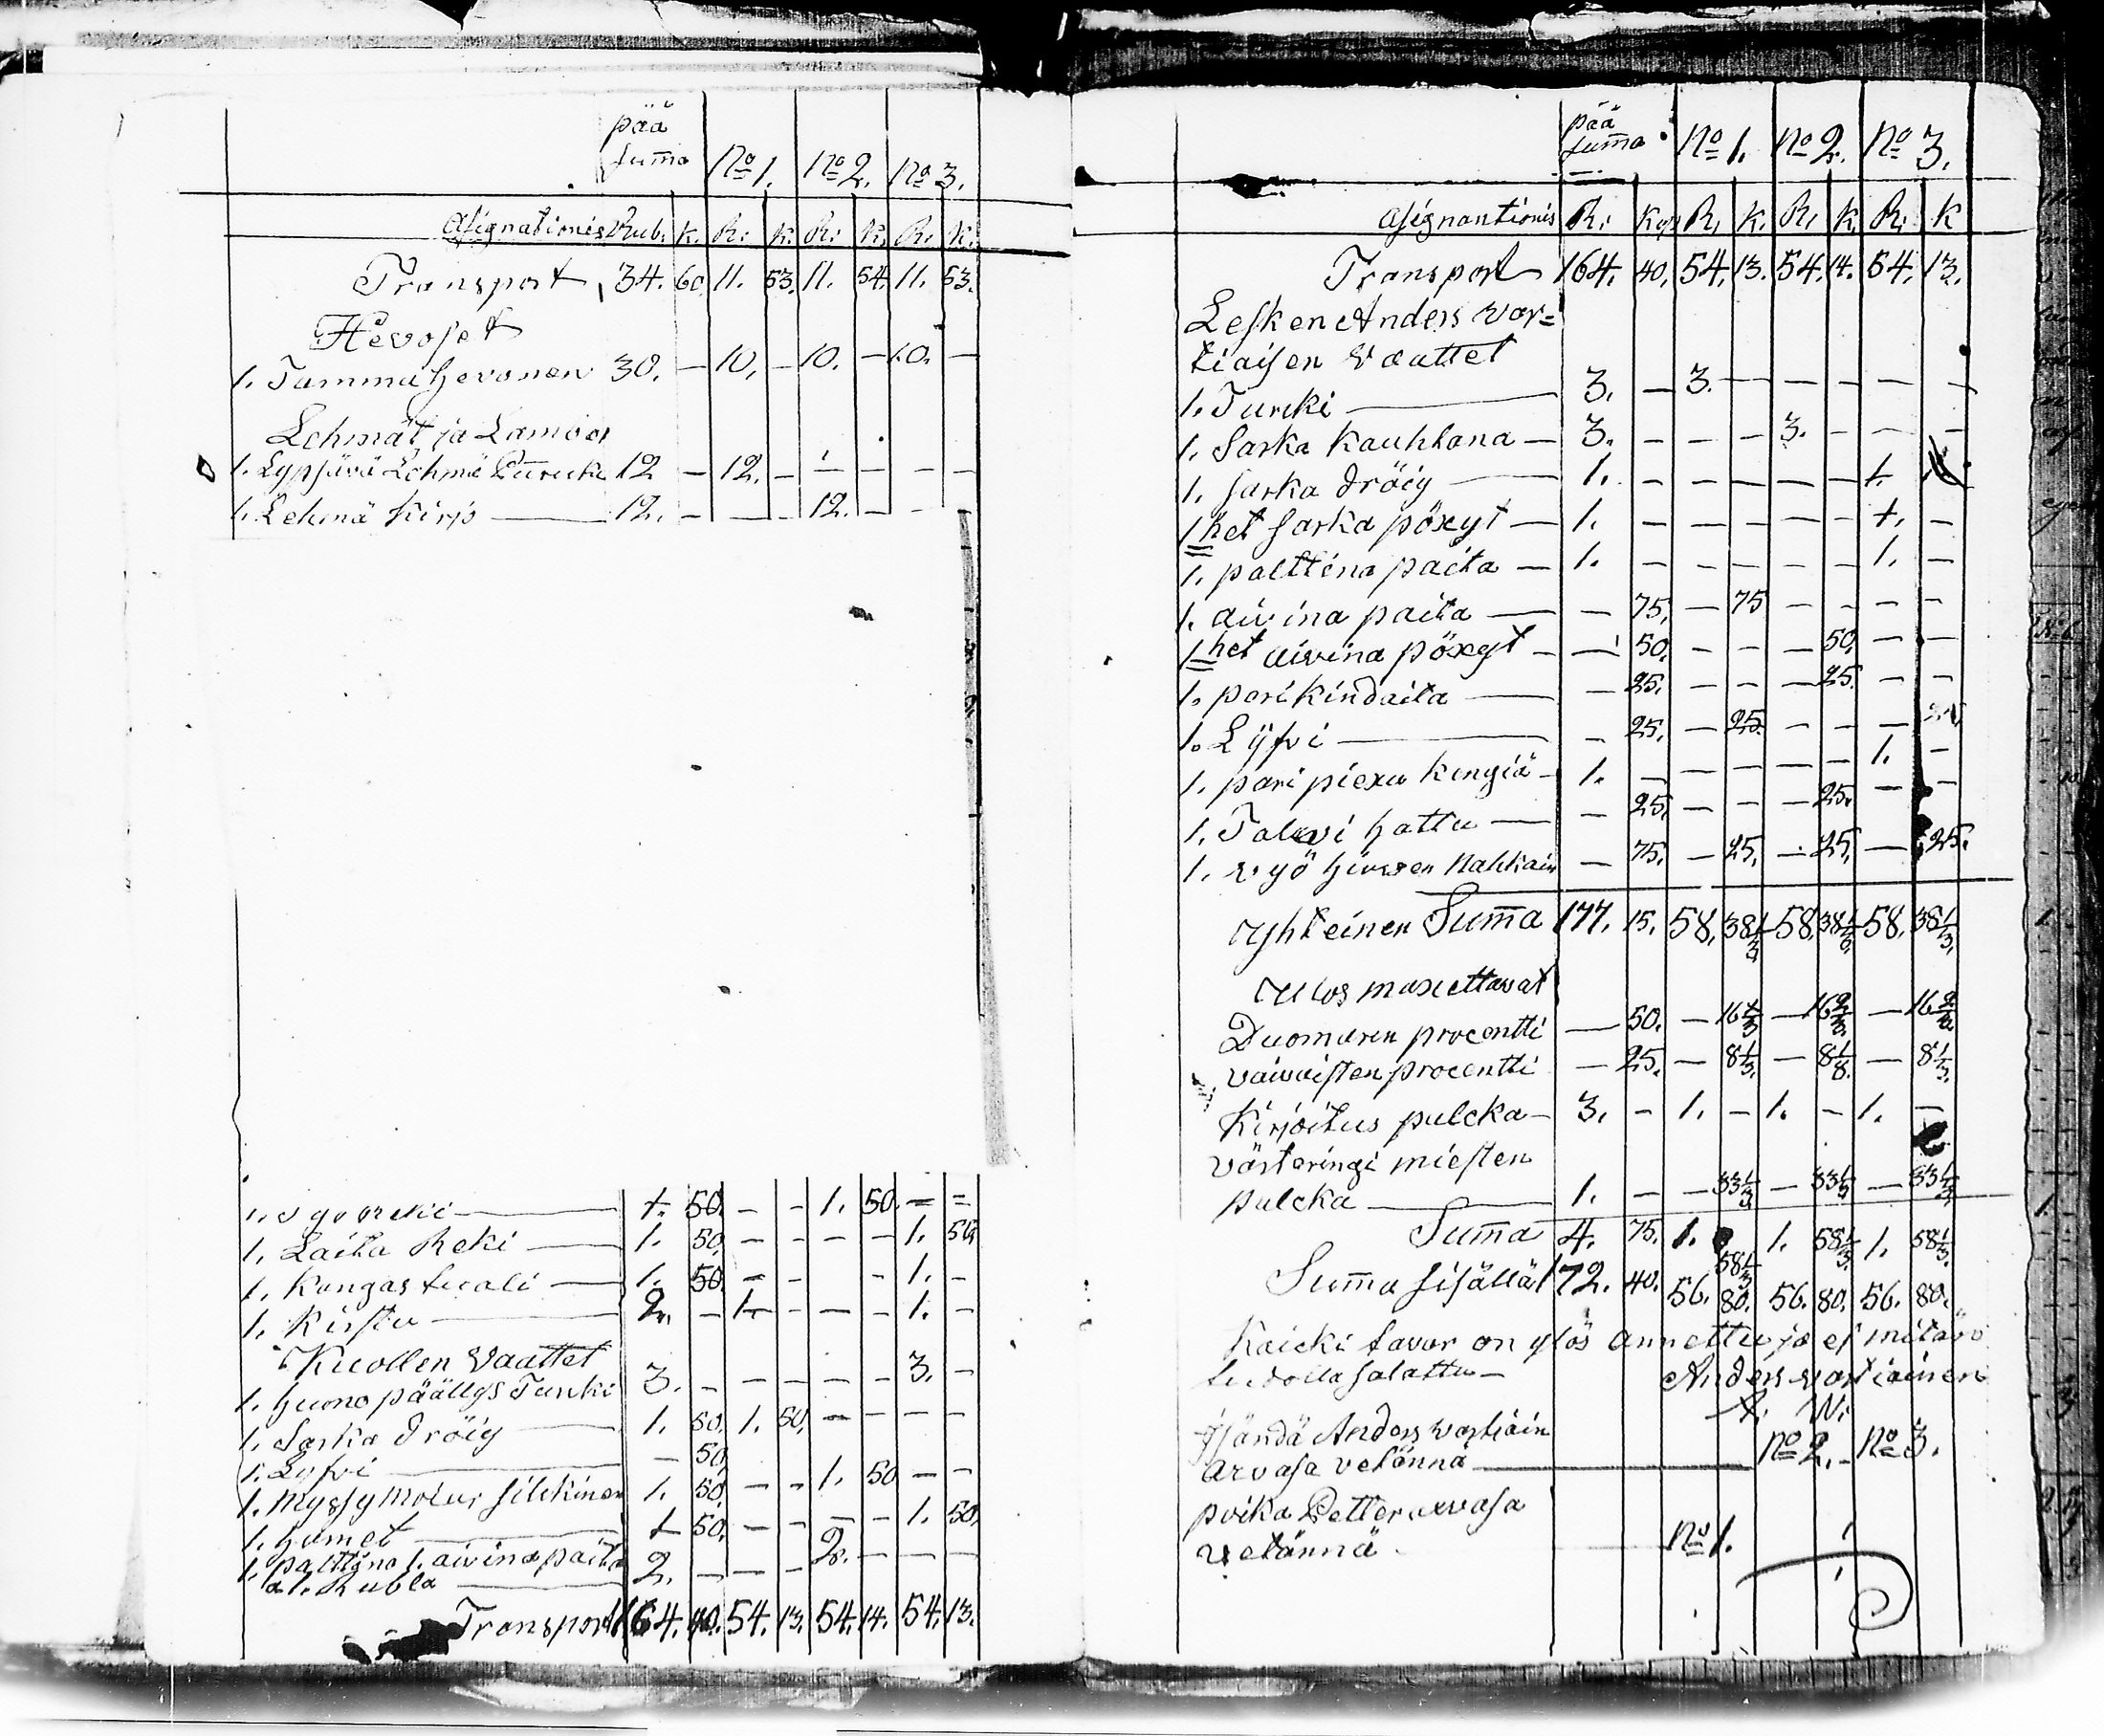 pää
Sum̄a No 1. No 2. No 3.
Asignationis Rub. K. R: K. R: K. R. K.
Transport, 34. 60. 11. 53. 11. 54. 11. 53.
Hevoset
1. Tamma hevonen 30. — 10. — 10. — 10. —
Lehmät ja Lamoa
1. Lypsävä Lehmä 12 — 12. — — — — —
1. Lehmä Kirjo — 12. — — — 12. — — —
50. — — 1. 50. — =
1. Laita Reki — 1. 50. — — — — 1. 50.
1. Kangas tuoli — 1. 50. — — — 1. —
1. Kirstu — 2. — 1. — — — 1. —
Kuollen Vaattet
1. huono päällys Turcki 3. — — — — — 3. —
1. Sarka dröiy — 1. 50. 1. 50. — — — —
1. Lyfvi — — 50.
1. myssy moLur silckinen 1. 50. — — 1. 50 — —
1. hamet — 1 50. — — — — 1. 50.
1. palttina 1. aivina paita 2. — — — 2. — — —
a 1. Rubla
Transport 164. 40. 54. 13. 54. 14. 54. 13.
pää
Sum̄a No 1. No 2. No 3.
Asignantionis R: Kop R, K. R, K. R, K
Transport 164. 40. 54. 13. 54. 14. 54. 13.
Lesken Anders Var=
tiaisen Vaattet
1. Turcki — 3. — 3. — — — — —
1. Sarka Kauhtana — 3. — — — 3. — — —
1. Sarka dröiy — 1. — — — — — 1.
1 het Sarka pöxyt — 1. — — — — — 1. —
1. palttina paita — 1. — — — — — 1. —
1. aivina paita — — 75, — 75 — — — —
1 het aivina pöxyt — — 50. — — — 50. — —
1. pari Kindaita — — 25. — — — 25. — —
1. Lÿfvi — — 25. — 25. — — —
1. pari piexu Kengiä — 1. — — — — — 1. —
1. Talvi hattu — — 25. — — — 25. — —
1. vyö hirven Nahkain — 75. — 25. — 25. — 25.
Yhteinen Sum̄a 177. 15. 58. 38⅓ 58. 38⅓ 58. 38⅓.
Ulos maxettavat
Duomaren procentti — 50. — 16⅔ — 16⅔ — 16⅔
vaivaisten procentti — 25. — 8⅓. — 8⅓. — 8⅓.
Kirjoitus palcka — 3. — 1. — 1. — 1. —
värteringi miesten
palcka — 1. — — 33⅓ — 33⅓ — 33⅓
Sum̄a 4. 75. 1. 58⅓ 1. 58⅓. 1. 58⅓.
Sum̄a sisällä 172. 40. 56. 80. 56. 80. 56. 80.
Kaicki tavar on ylös annettu ja ej mitän
salattu — Anders vartiainen
A. W.
Isändä Anders vartiain
arvasa vetännä — No 2. — No 3.
poika Petter arvasa
vetännä — No 1.